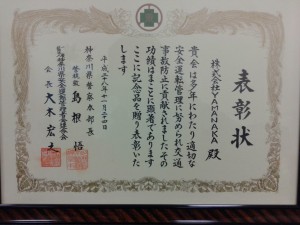 表彰状
株式会社YAMANAKA 殿
貴会は多年にわたり適切な
安全運転管理に努められ交通
事故防止に貢献されましたその
功績はまことに顕著であります
ここに記念品を贈り表彰いた
します
平成二十八年十一月二十四日
神奈川県警察本部長
警視監 島根 悟
神奈川県安全運転管理者会連合会
会長 大木 宏之